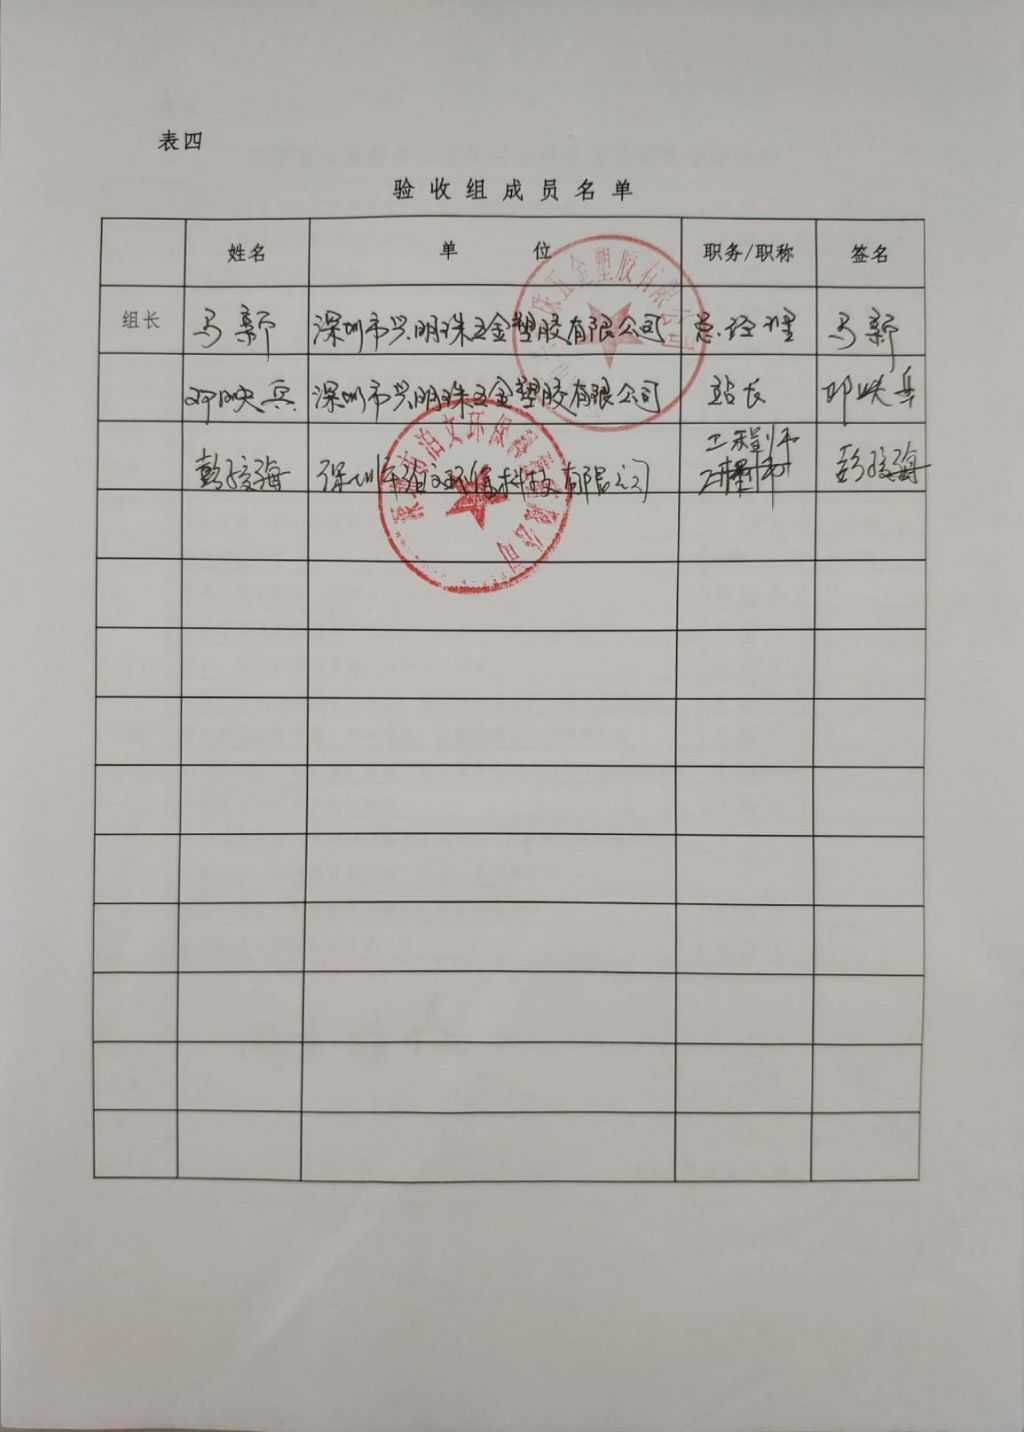 表四
验收组成员名单
姓名 单位 职务/职称 签名
组长 马新 深圳市兴明珠五金塑胶有限公司 总经理 马新
邓映兵 深圳市兴明珠五金塑胶有限公司 站长 邓映兵
工程师
彭 海 深圳市泊文环保科技有限公司 彭 海
珠五金塑胶有限公司
深圳市泊文环保科技有限公司